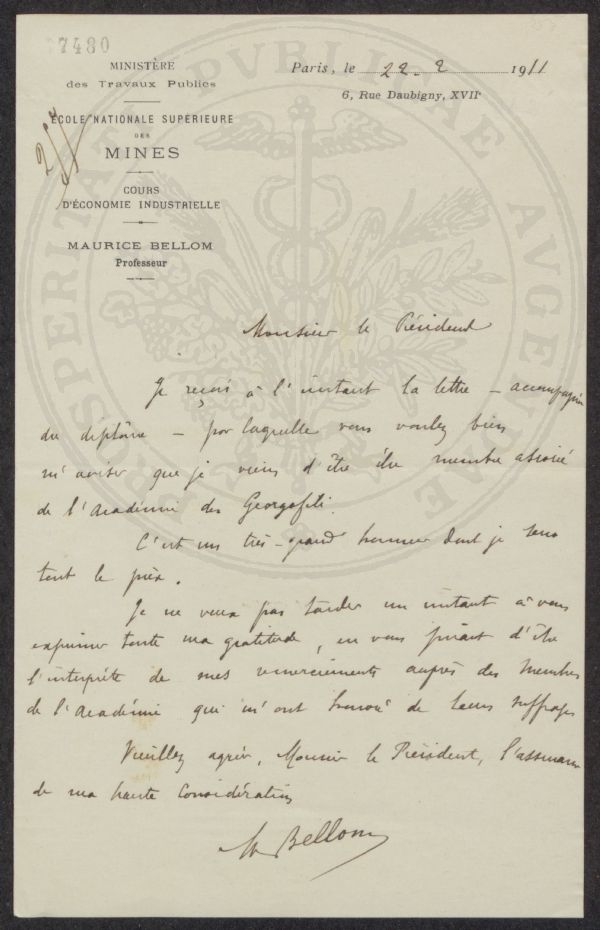 7480
MINISTÈRE
des Travaux Publics
ÉCOLE NATIONALE SUPÉRIEURE
DES
MINES
COURS
D'ÉCONOMIE INDUSTRIELLE
MAURICE BELLOM
Professeur
Paris, le 22.2 1911
6, Rue Daubigny, XVIIe
PROSPERITATI PVBLICAE AVGENDAE
Monsieur le Président
Je reçois à l'instant la lettre – accompagnée
du diplôme – par laquelle vous voulez bien
m'aviser que je viens d'être élu membre associé
de l'Académie des Georgofili.
C'est un très-grand honneur dont je sens
tout le prix.
Je ne veux pas tarder un instant à vous
exprimer toute ma gratitude, en vous priant d'être
l'interprète de mes remerciements auprès des membres
de l'Académie qui m'ont honoré de leurs suffrages
Veuillez agréer, Monsieur le Président, l'assurance
de ma haute considération
M Bellom